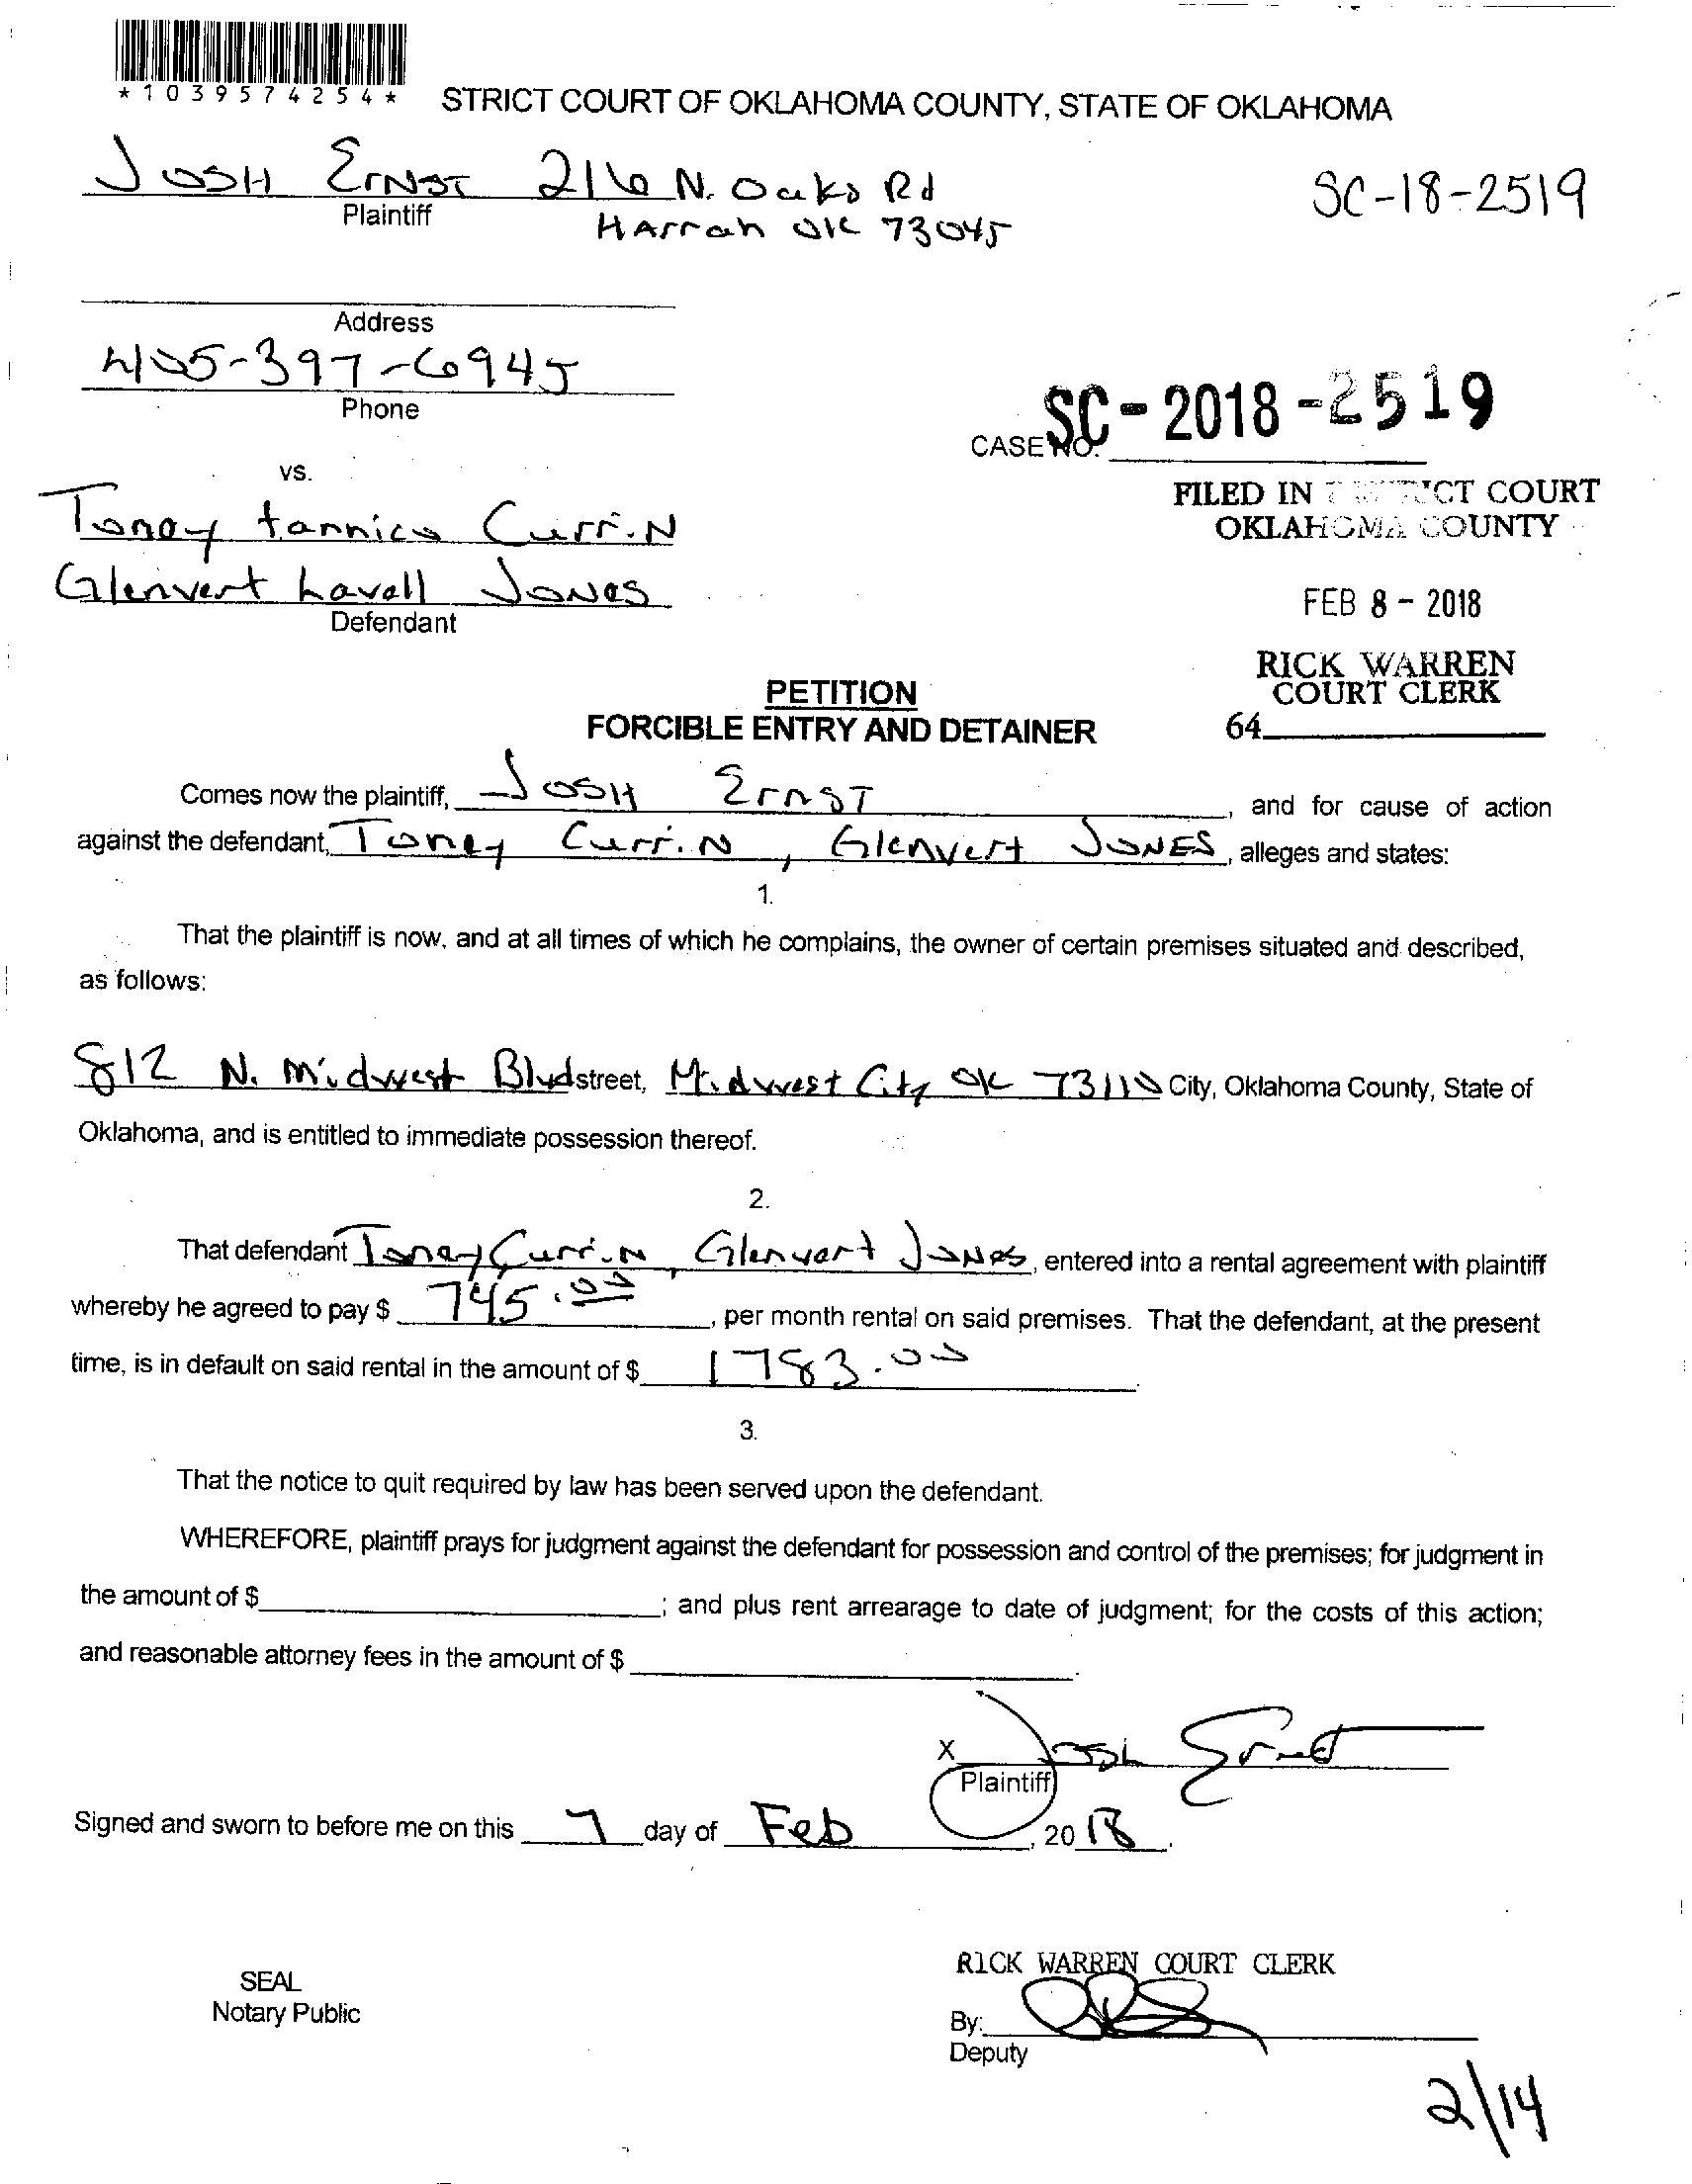 *1039574254*
STRICT COURT OF OKLAHOMA COUNTY, STATE OF OKLAHOMA
JOSH ErNST 216 N. Oaks Rd
Plaintiff
HArrah OK 73045
SC-18-2519
Address
405-397-6945
Phone
CASE NO. SC-2018-2519
vs.
FILED IN DISTRICT COURT
OKLAHOMA COUNTY
Toney tannico Currin
Glenvert Lavell Jones
Defendant
FEB 8 - 2018
RICK WARREN
COURT CLERK
64
PETITION
FORCIBLE ENTRY AND DETAINER
Comes now the plaintiff, JOSH ErnST, and for cause of action
against the defendant, Toney Currin, Glenvert JONES, alleges and states:
1.
That the plaintiff is now, and at all times of which he complains, the owner of certain premises situated and described,
as follows:
812 N. Midwest Blvd street, Midwest City OK 73110 City, Oklahoma County, State of
Oklahoma, and is entitled to immediate possession thereof.
2.
That defendant Toney Currin, Glenvert Jones, entered into a rental agreement with plaintiff
whereby he agreed to pay $ 745.00, per month rental on said premises. That the defendant, at the present
time, is in default on said rental in the amount of $ 1783.00.
3.
That the notice to quit required by law has been served upon the defendant.
WHEREFORE, plaintiff prays for judgment against the defendant for possession and control of the premises; for judgment in
the amount of $ ; and plus rent arrearage to date of judgment; for the costs of this action;
and reasonable attorney fees in the amount of $ .
X Josh Ernst
Plaintiff
Signed and sworn to before me on this 7 day of Feb, 2018.
RICK WARREN COURT CLERK
SEAL
Notary Public
By:
Deputy
2/14